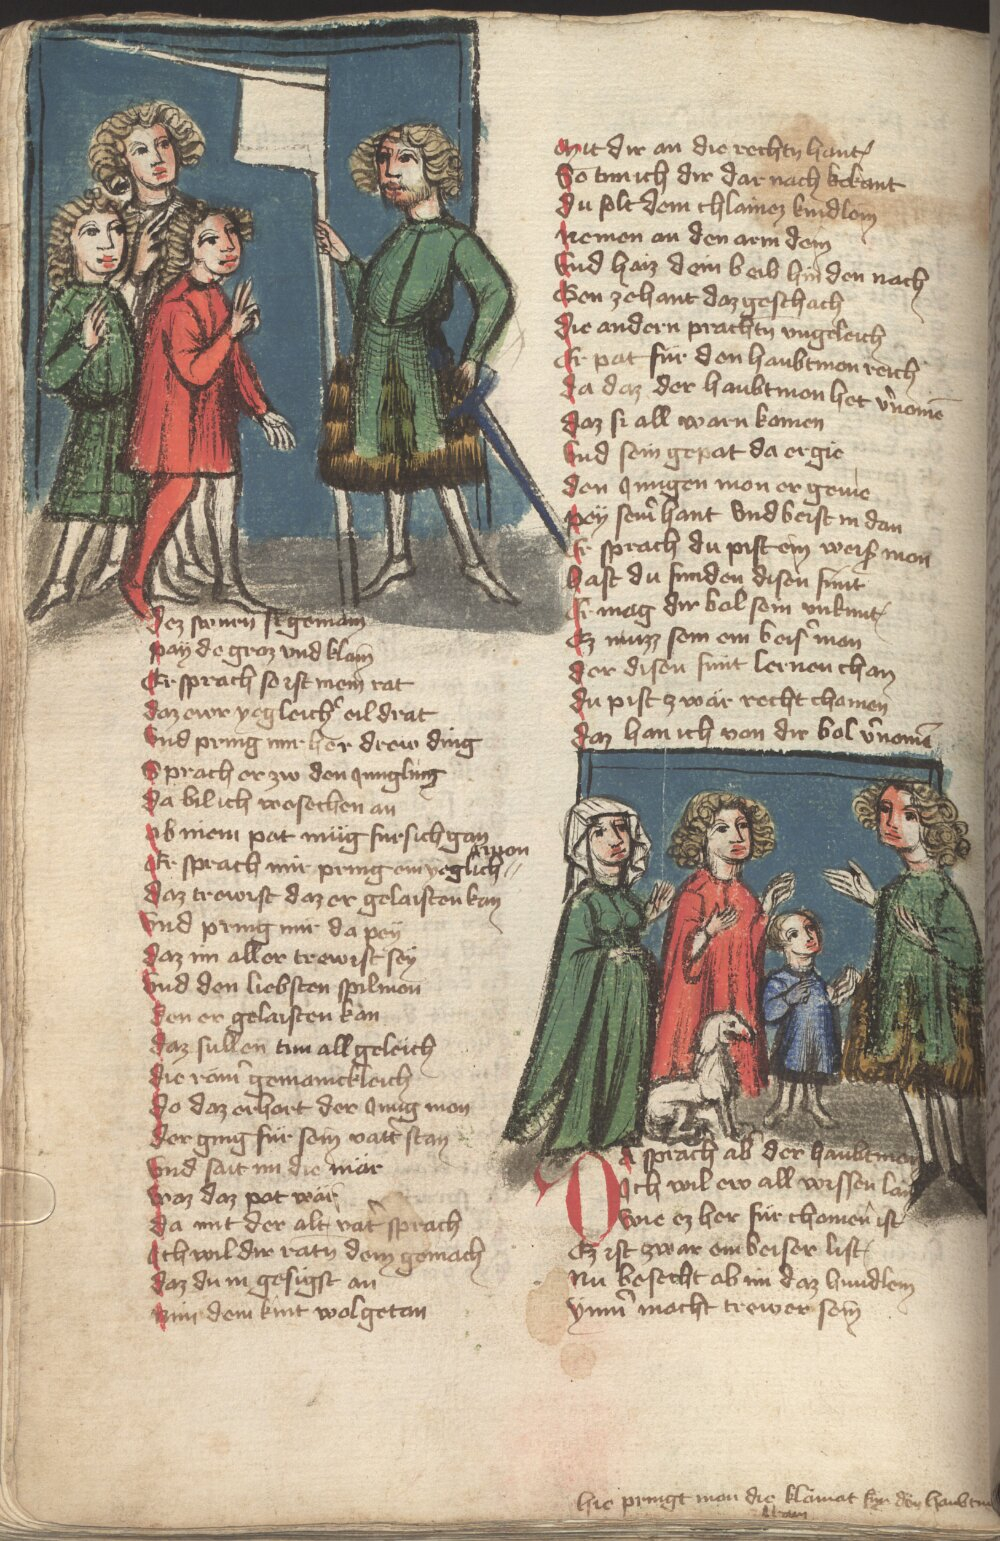 Dez swurn si gemain
payde groz vnd klain
Er sprach so ist mein rat
daz ewr yegleicher eil drat
Vnd pring mir her drew ding
Sprach er zw den Jungling
Da bil ich wesechen an
ob niem pat müg für sich gan
Er sprach mir pring ein yeglich man
daz trewist daz er gelaisten kan
Vnd pring mir da pey
daz im aller trewist sey
Vnd den liebsten spilmon
den er gelaisten kan
daz sullen tun all geleich
die
do daz erhort der Jung mon
der ging für sein vatter stan
Vnd sait im die mär
waz daz pot wär
da mit der alt vater sprach
Ich wil dir ratn dein gemach
daz du in gesigst an
nim dem kint wolgetan
Mit dir an die rechtn hant
So tun ich dir dar nach bekant
du solt dem chlainez kindlein
nemen an den arm dein
Vnd haiz dein beib hin den nach
Gen zehant daz geschach
die andern prachtn vngeleich
Er pat für den haubtmon reich
da daz der haubtmon het vernomen
daz si all warn komen
Vnd sein gepat da ergie
den Jungen mon er gevie
pey seiner hant Vnd beist in dan
Er sprach du pist ein weiser mon
hast du funden disen sint
Er mag dir bol sein vnkunt
Ez muzz sein ein beiser mon
der disen sint lernen chan
du pist zwar recht chamen
daz han ich von dir bol vernomen
Da sprach ab der haubtmon
Ich wil ew all wissen lan
wie ez her für chomen ist
Ez ist zwar ein beiser list
Nu besecht ab im daz hundlein
ymmer macht trewer sein
hie pringt man die klainat für den haubtm